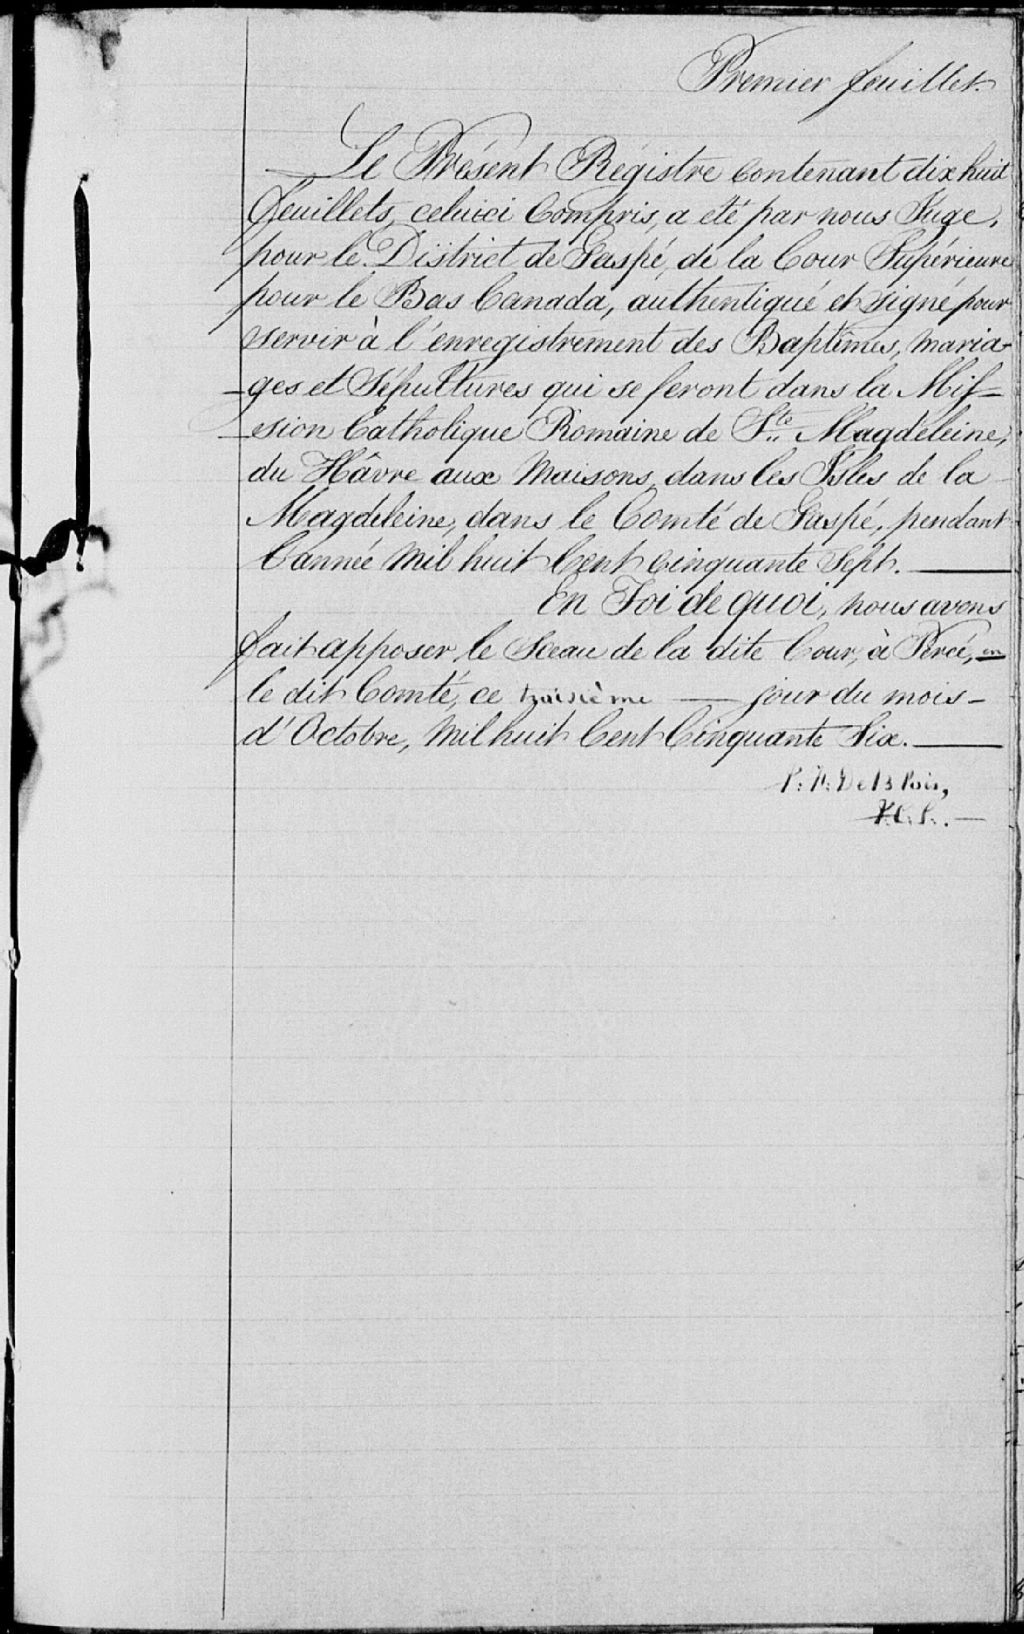 Premier feuillet.
Le Présent Régistre contenant dix huit
feuillets, celui ci Compris, a eté par nous Juge,
pour le District de Gaspé, de la Cour Supérieure
pour le Bas Canada, authentiqué et signé pour
servir à l'enregistrement des Baptêmes, maria-
-ges et Sépultures qui se feront dans la Mis-
-sion Catholique Romaine de Ste Magdeleine,
du Hâvre aux Maisons, dans les Isles de la
Magdeleine, dans le Comté de Gaspé, pendant
l'année Mil huit Cent Cinquante Sept.
En Foi de quoi, nous avons
fait apposer le Sceau de la dite Cour, à Percé, en
le dit Comté, ce troisième — jour du mois
d'Octobre, Mil huit Cent Cinquante Six.
DeBlois,